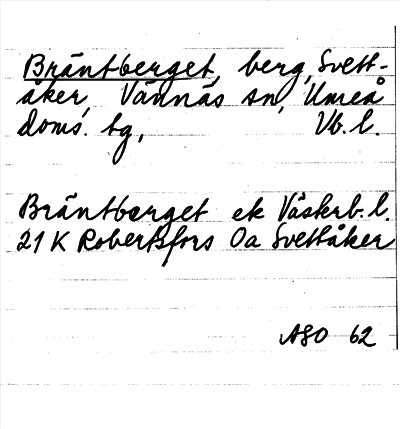 Bräntberget, berg, Svett-
åker, Vännäs sn, Umeå
doms. tg, Vb. l.
Bräntberget ek Västerb. l.
21 K Robertsfors Oa Svettåker
ASO 62